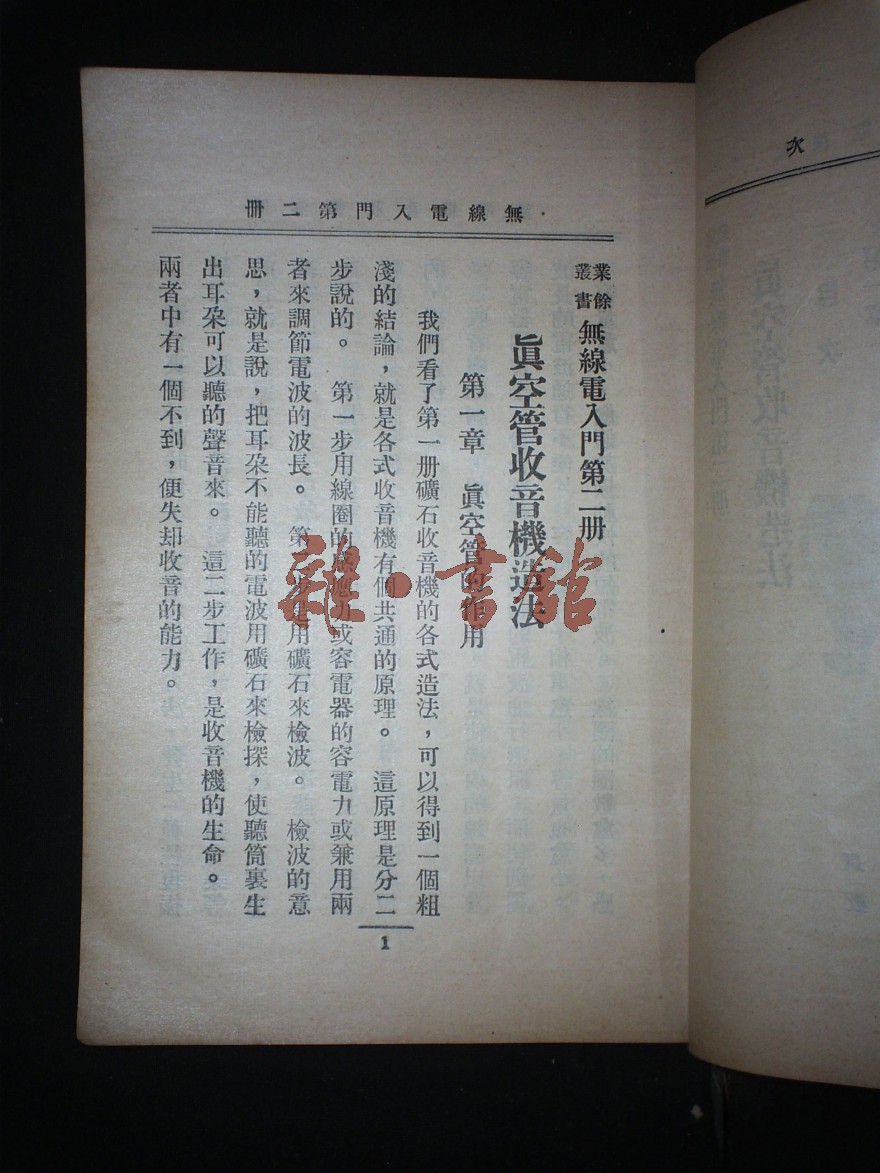 無線電入門第二冊
業餘叢書 無線電入門第二册
眞空管收音機造法
第一章 眞空管的作用
我們看了第一册礦石收音機的各式造法，可以得到一個粗
淺的結論，就是各式收音機有個共通的原理。 這原理是分二
步說的。 第一步用線圈的感應力或容電器的容電力或兼用兩
者來調節電波的波長。 第二步是用礦石來檢波。 檢波的意
思，就是說，把耳朶不能聽的電波用礦石來檢探，使聽筒裏生
出耳朶可以聽的聲音來。 這二步工作，是收音機的生命。
兩者中有一個不到，便失却收音的能力。
1
次
雜·書館